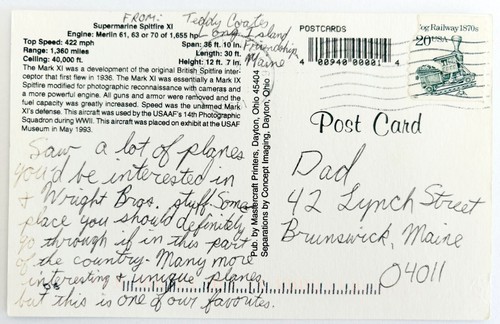 FROM: Teddy Coates
Long Island
Friendship
Maine
Supermarine Spitfire XI
Engine: Merlin 61, 63 or 70 of 1,655 hp
Top Speed: 422 mph
Span: 36 ft. 10 in.
Range: 1,360 miles
Length: 30 ft.
Ceiling: 40,000 ft.
Height: 12 ft. 7 in.
The Mark XI was a development of the original British Spitfire inter-
ceptor that first flew in 1936. The Mark XI was essentially a Mark IX
Spitfire modified for photographic reconnaissance with cameras and
a more powerful engine. All guns and armor were removed and the
fuel capacity was greatly increased. Speed was the unarmed Mark
XI's defense. This aircraft was used by the USAAF's 14th Photographic
Squadron during WWII. This aircraft was placed on exhibit at the USAF
Museum in May 1993.
Saw a lot of planes
you'd be interested in
& Wright Bros. stuff. Some
place you should definitely
go through if in this part
of the country - Many more
interesting & unique planes,
but this is one of our favorites.
Pub. by Mastercraft Printers, Dayton, Ohio 45404
Separations by Concept Imaging, Dayton, Ohio
POSTCARDS
4 00940 00001 4
Cog Railway 1870s
20 USA
Post Card
Dad
42 Lynch Street
Brunswick, Maine
04011